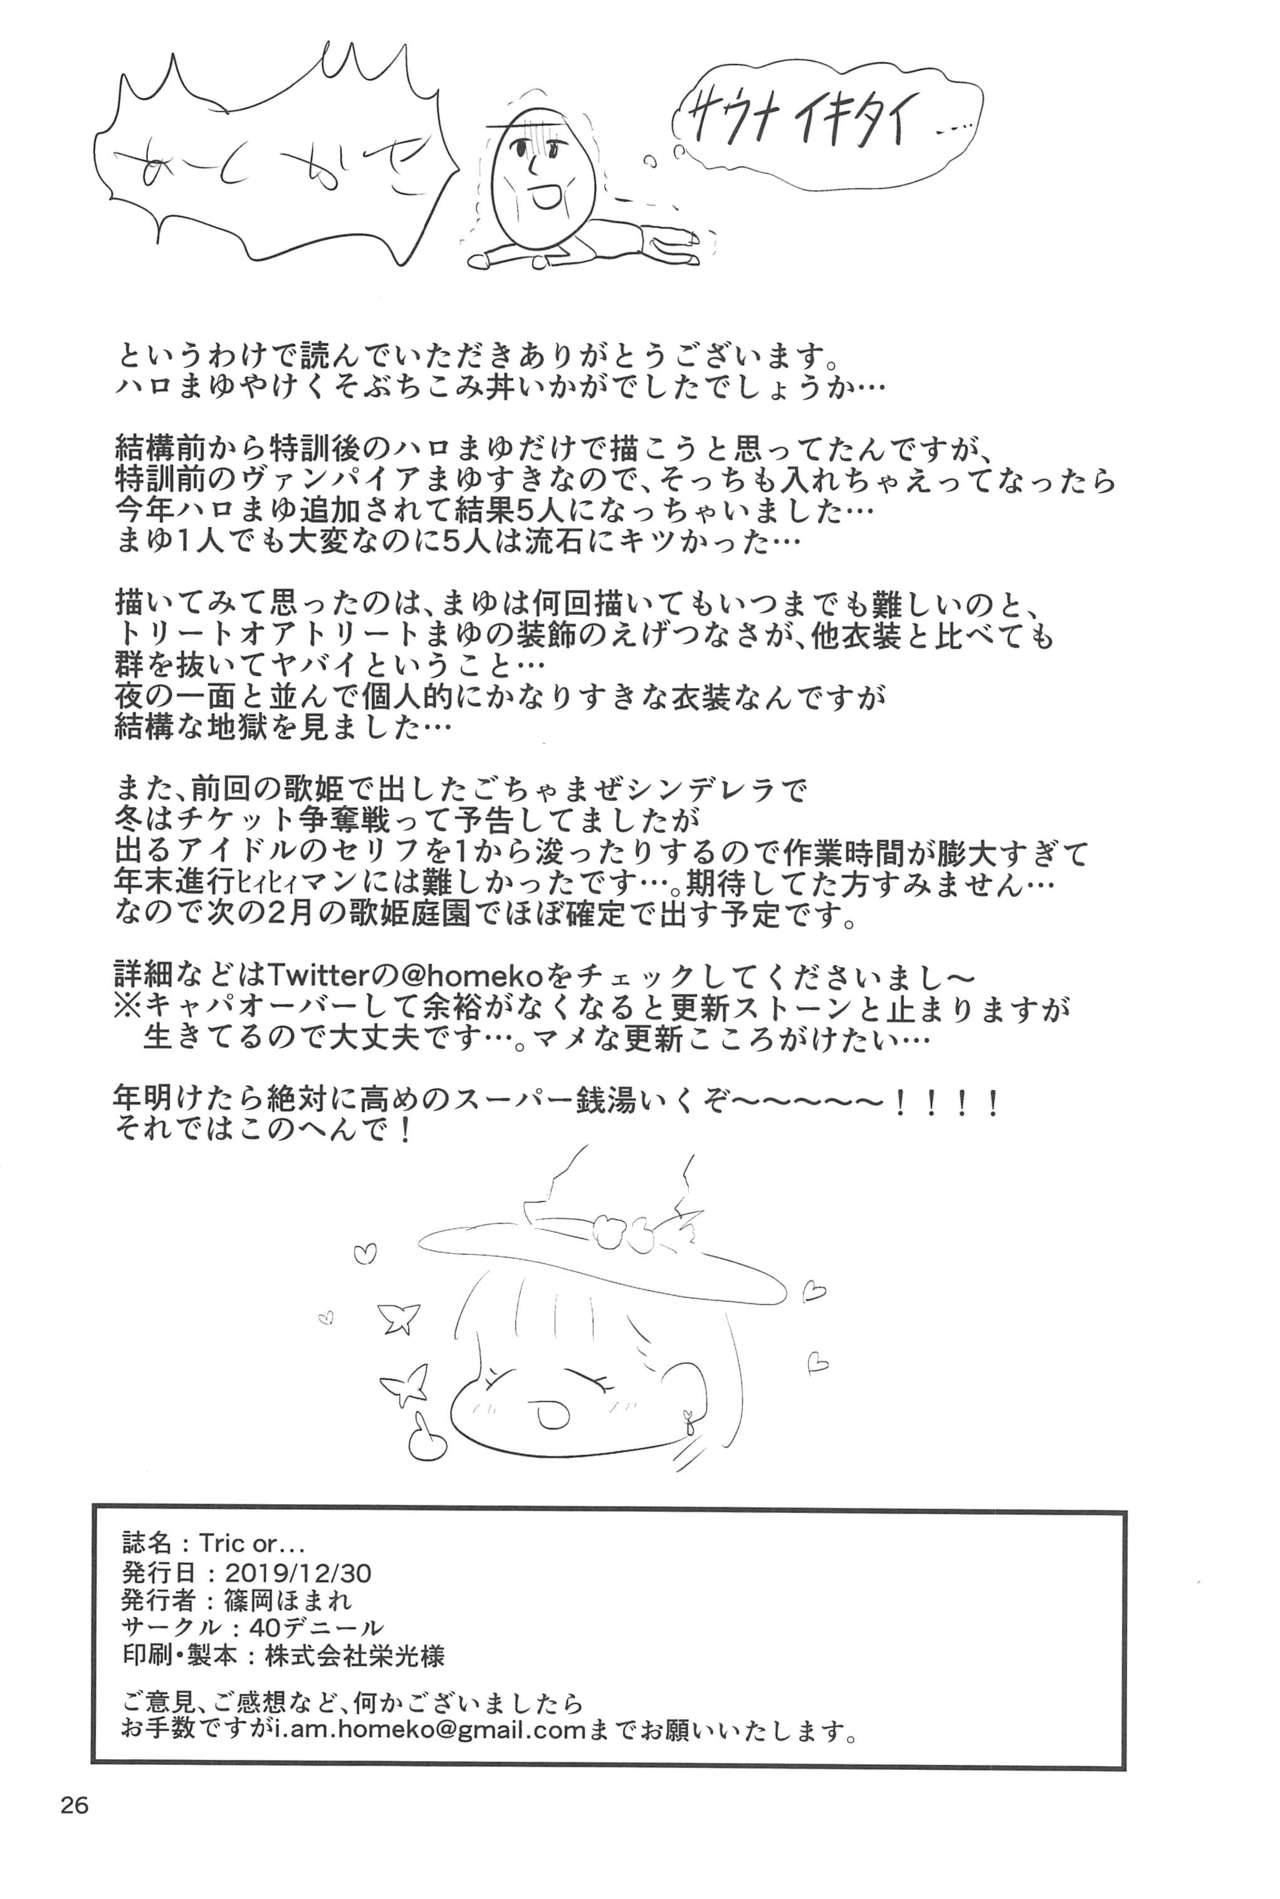 あーとがき
サウナイキタイ……
というわけで読んでいただきありがとうございます。
ハロまゆやけくそぶちこみ丼いかがでしたでしょうか…
結構前から特訓後のハロまゆだけで描こうと思ってたんですが、
特訓前のヴァンパイアまゆすきなので、そっちも入れちゃえってなったら
今年ハロまゆ追加されて結果5人になっちゃいました…
まゆ1人でも大変なのに5人は流石にキツかった…
描いてみて思ったのは、まゆは何回描いてもいつまでも難しいのと、
トリートオアトリートまゆの装飾のえげつなさが、他衣装と比べても
群を抜いてヤバイということ…
夜の一面と並んで個人的にかなりすきな衣装なんですが
結構な地獄を見ました…
また、前回の歌姫で出したごちゃまぜシンデレラで
冬はチケット争奪戦って予告してましたが
出るアイドルのセリフを1から浚ったりするので作業時間が膨大すぎて
年末進行ﾋｨﾋｨマンには難しかったです…。期待してた方すみません…
なので次の2月の歌姫庭園でほぼ確定で出す予定です。
詳細などはTwitterの@homekoをチェックしてくださいまし～
※キャパオーバーして余裕がなくなると更新ストーンと止まりますが
生きてるので大丈夫です…。マメな更新こころがけたい…
年明けたら絶対に高めのスーパー銭湯いくぞ～～～～～！！！！
それではこのへんで！
誌名：Tric or…
発行日：2019/12/30
発行者：篠岡ほまれ
サークル：40デニール
印刷・製本：株式会社栄光様
ご意見、ご感想など、何かございましたら
お手数ですがi.am.homeko@gmail.comまでお願いいたします。
26